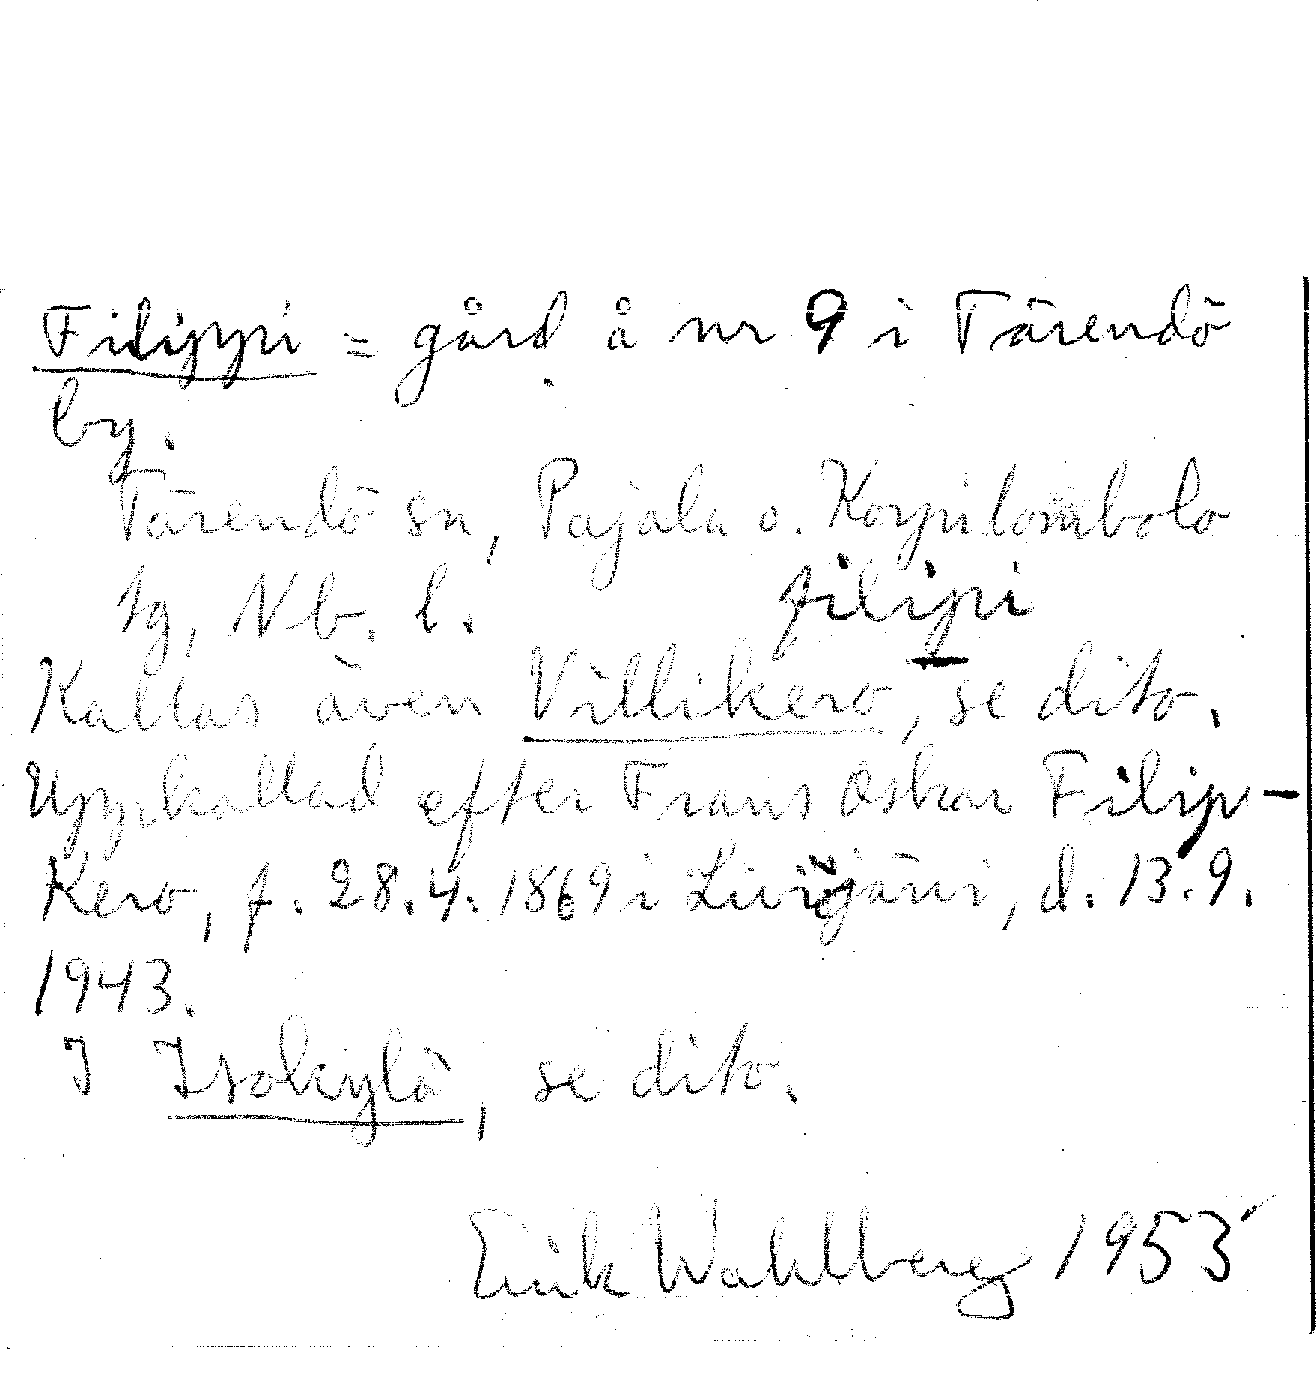 Filippi = gård å nr 9 i Tärendö
by.
Tärendö sn, Pajala o. Korpilombolo
tg, Nb. l. filipi
Kallas även Villikero, se dito.
Uppkallad efter Frans Oskar Filip-
Kero, f. 28.4.1869 i Liviöjärvi, d. 13.9.
1943.
I Isokylä, se dito.
Erik Wahlberg 1953